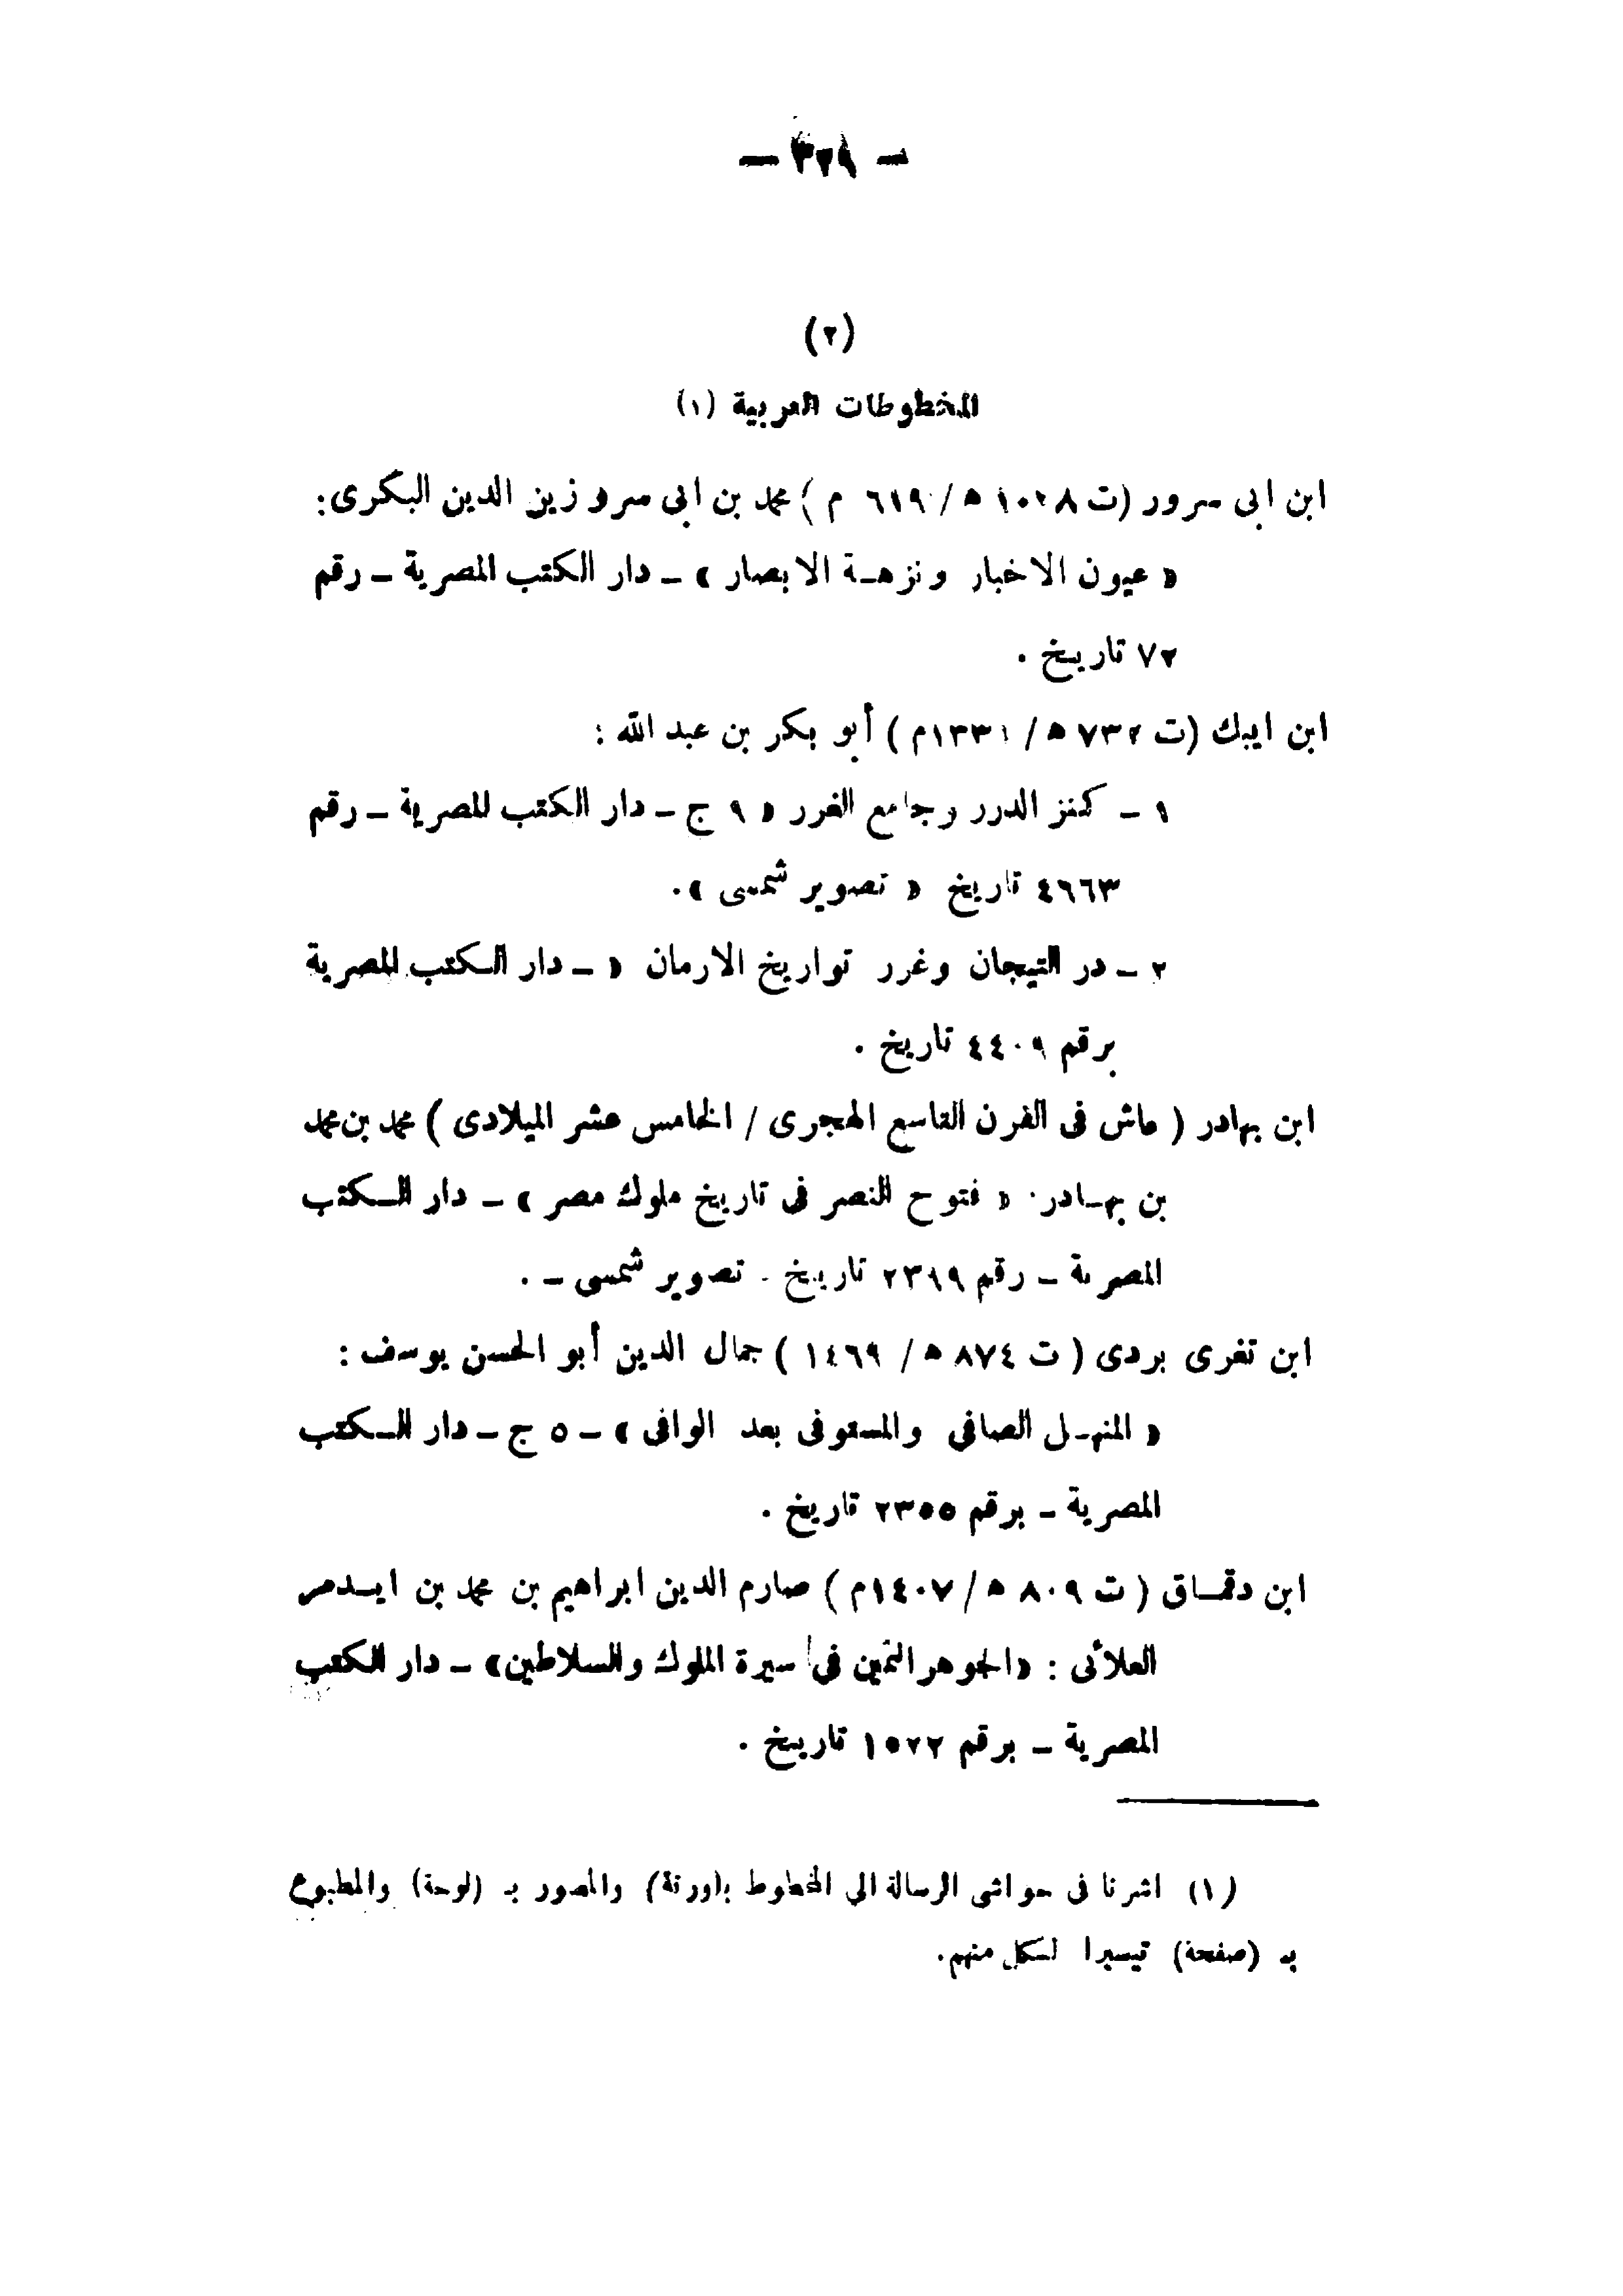 — ٣٢٩ —
(٢)
المخطوطات العربية (١)
ابن ابى سرور (ت ١٠٢٨ ه / ٦١٩ م) محمد بن ابى سرور زين الدين البكرى:
« عيون الاخبار ونزهـة الابصار » — دار الكتب المصرية — رقم
٧٢ تاريخ .
ابن ايبك (ت ٧٣٢ ه / ١٣٣١م) أبو بكر بن عبد الله :
١ — كنز الدرر وجامع الغرر « ٩ ج — دار الكتب المصرية — رقم
٤٦٦٣ تاريخ « تصوير شمسى ».
٢ — در التيجان وغرر تواريخ الارمان « — دار الكتب المصرية
برقم ٤٤٠٩ تاريخ .
ابن بهادر ( عاش فى القرن التاسع الهجرى / الخامس عشر الميلادى ) محمد بن محمد
بن بهـادر. « فتوح النصر فى تاريخ ملوك مصر » — دار الكتب
المصرية — رقم ٢٣٩٩ تاريخ - تصوير شمسى — .
ابن تغرى بردى ( ت ٨٧٤ ه / ١٤٦٩ ) جمال الدين أبو الحسن يوسف :
« المنهـل الصافي والمستوفى بعد الوافى » — ٥ ج — دار الكتب
المصرية — برقم ٢٣٥٥ تاريخ .
ابن دقمـاق ( ت ٨٠٩ ه / ١٤٠٧م ) صارم الدين ابراهيم بن محمد بن ايـدمر
العلائى : «الجوهر الثمين في سيرة الملوك والسلاطين» — دار الكتب
المصرية — برقم ١٥٢٢ تاريخ .
(١) اشرنا فى حواشى الرسالة الى المخطوط بـ(ورقة) والمصور بـ (لوحة) والمطبوع
بـ (صفحة) تيسيرا لكل منهم.